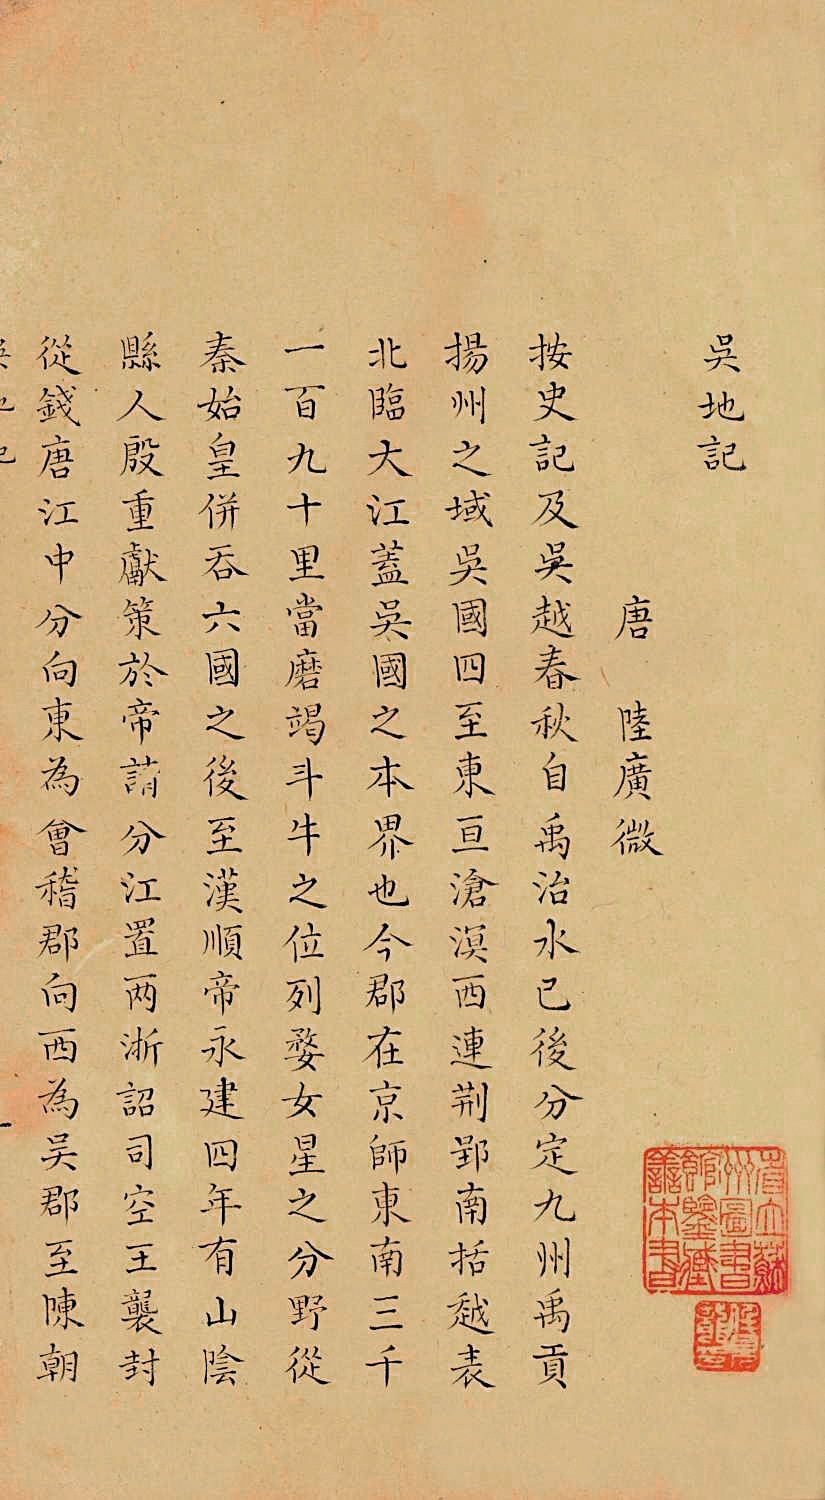 吳地記
唐 陸廣微
按史記及吳越春秋自禹治水已後分定九州禹貢
揚州之域吳國四至東亘滄溟西連荆郢南括越表
北臨大江蓋吳國之本界也今郡在京師東南三千
一百九十里當磨竭斗牛之位列婺女星之分野從
秦始皇併吞六國之後至漢順帝永建四年有山陰
縣人殷重獻策於帝請分江置两浙詔司空王襲封
從錢唐江中分向東為會稽郡向西為吳郡至陳朝
吳地記
省立蘇
州圖書
館鑒藏
善本書